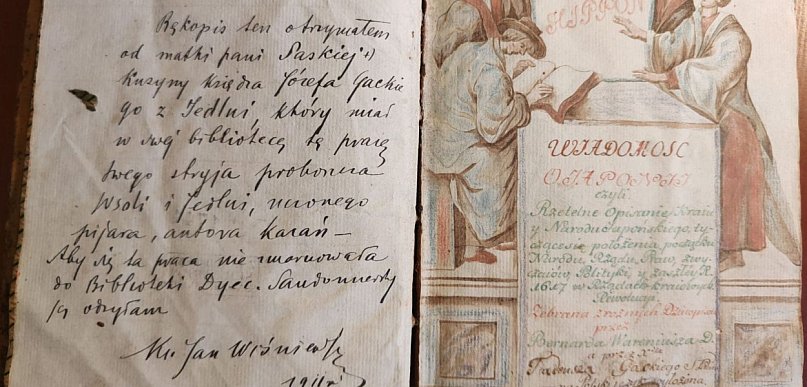 Rękopis ten otrzymałem
od matki pani Saskiej +)
Kuzyny Księdza Józefa Gackie
go z Jedlni, który miał
w swej bibliotece tę pracę
swego stryja proboszcza
Wsoli i Jedlni, uczonego
pijara, autora kazań –
Aby się ta praca nie zmarnowała
do Biblioteki Dyec. Sandomierskiej
ją odsyłam
Ks. Jan Wiśniewski
WIADOMOSC
O IAPONII
czyli
Rzetelne Opisanie Kraiu
y Narodu Iaponskiego, ty-
czące się położenia początku
Narodu, Rządu, Praw, zwy-
czaiow, Polityki, y zaszłey R.
1617 w Rządach kraiowych
Rewolucyi
Zebrana z rożnych Dzieiopisow
przez
Bernarda Wareniusza D.
a przez X.
Tadeusza Gackiego S. P.